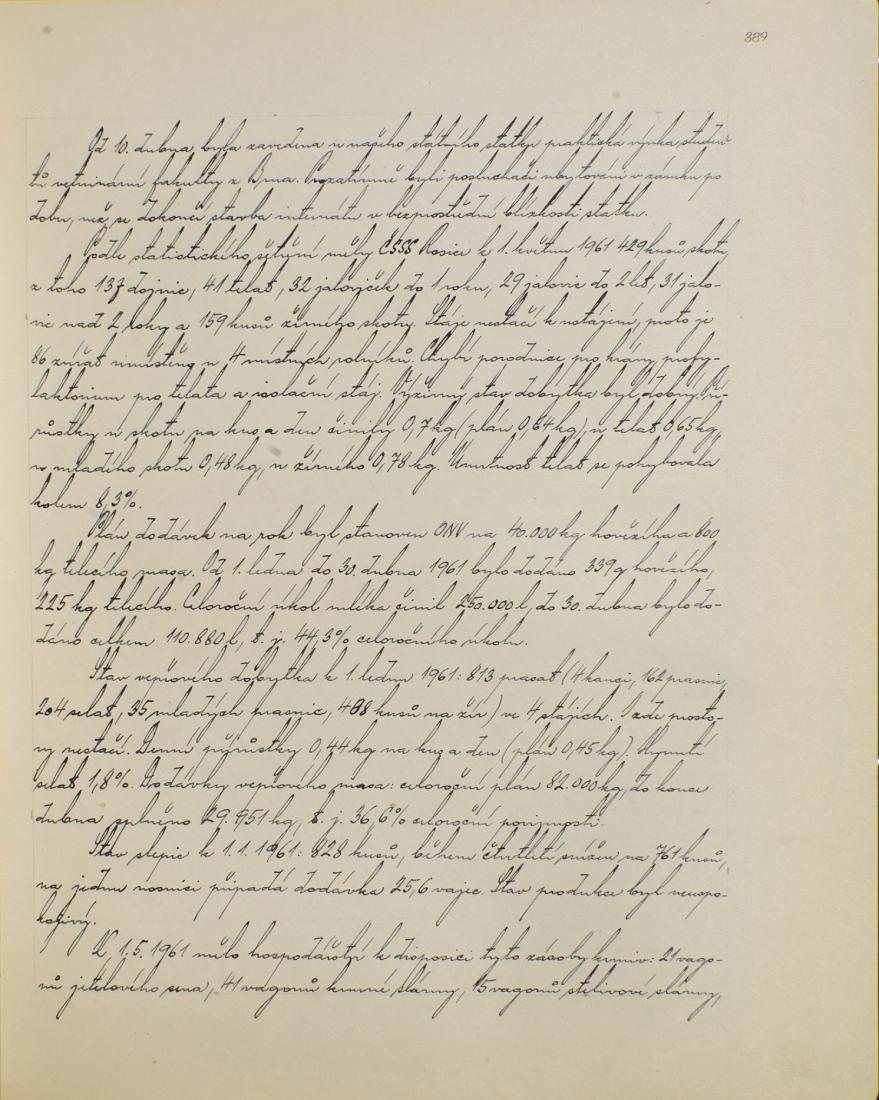 389
Od 10. dubna byla zavedena u našeho státního statku praktická výuka studen-
tů veterinární fakulty z Brna. Prozatímně byli posluchači ubytováni v zámku po
dobu, než se dokončí stavba internátu v bezprostřední blízkosti statku.
Podle statistického šetření měly ČSSS Rosice k 1. květnu 1961 429 kusů skotu,
z toho 137 dojnic, 41 telat, 32 jaloviček do 1 roku, 29 jalovic do 2 let, 31 jalo-
vic nad 2 roky a 159 kusů žírného skotu. Stáje nestačí k ustájení, proto je
86 zvířat umístěno u 4 místních rolníků. Chybí porodnice pro krávy, profy-
laktorium pro telata a isolační stáj. Výživný stav dobytka byl dobrý. Pří-
růstky u skotu na kus a den činily 0,7 kg (plán 0,64 kg), u telat 0,65 kg,
u mladého skotu 0,48 kg, u žírného 0,78 kg. Úmrtnost telat se pohybovala
kolem 8,3%.
Plán dodávek na rok byl stanoven ONV na 40.000 kg hovězího a 800
kg telecího masa. Od 1. ledna do 30. dubna 1961 bylo dodáno 339 q hovězího,
225 kg telecího. Celoroční úkol mléka činil 250.000 l, do 30. dubna bylo do-
dáno celkem 110.880 l, t. j. 44,3% celoročního úkolu.
Stav vepřového dobytka k 1. lednu 1961: 813 prasat (4 kanci, 162 prasnic,
204 selat, 35 mladých prasnic, 408 kusů na žír) ve 4 stájích. I zde prosto-
ry nestačí. Denní přírůstky 0,44 kg na kus a den (plán 0,45 kg). Hynutí
selat 1,8%. Dodávky vepřového masa: celoroční plán 82.000 kg, do konce
dubna splněno 29.951 kg, t. j. 36,6% celoroční povinnosti.
Stav slepic k 1. 1. 1961: 828 kusů, během čtvrtletí snížen na 761 kusů,
na jednu nosnici připadá dodávka 25,6 vajec. Stav produkce byl neuspo-
kojivý.
K 1. 5. 1961 mělo hospodářství k disposici tyto zásoby krmiv: 21 vago-
nů jetelového sena, 41 vagonů krmné slámy, 15 vagonů stelivové slámy,